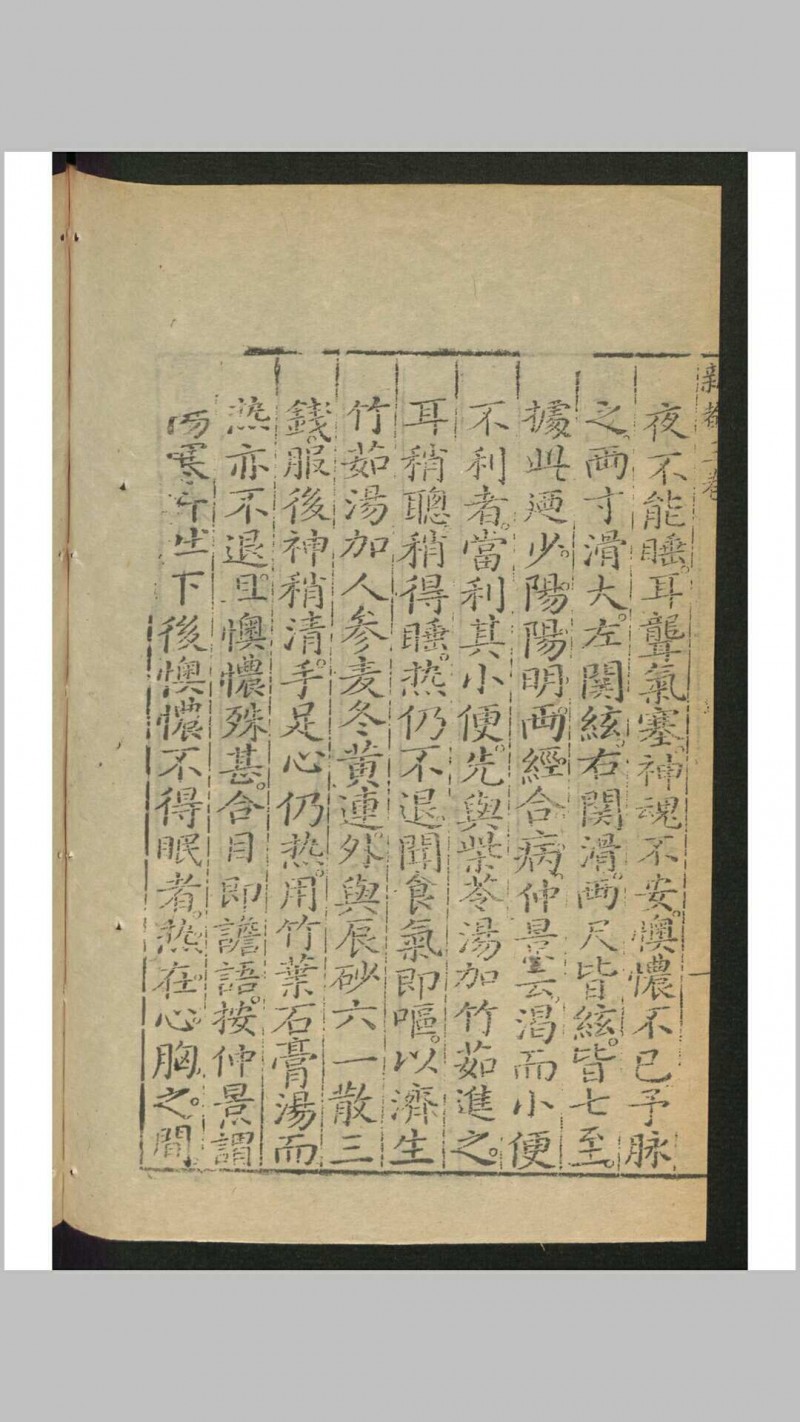 新都二卷
夜不能睡。耳聾氣塞。神魂不安。懊憹不已予脉
之。兩寸滑大。左関絃。右関滑。兩尺皆絃。皆七至。
據此廼少。陽陽明。兩經合病。仲景云。渴而小便
不利者。當利其小便。先與柴苓湯加竹茹進之。
耳稍聰稍得睡。热仍不退聞食氣即嘔。以濟生
竹茹湯加人參麦冬黄連。外與辰砂六一散三
錢。服後神稍清。手足心仍热。用竹葉石膏湯而
热亦不退。且懊憹殊甚。合目即譫語。按仲景謂
傷寒汗吐下後懊憹不得眠者。热在心胸之間。